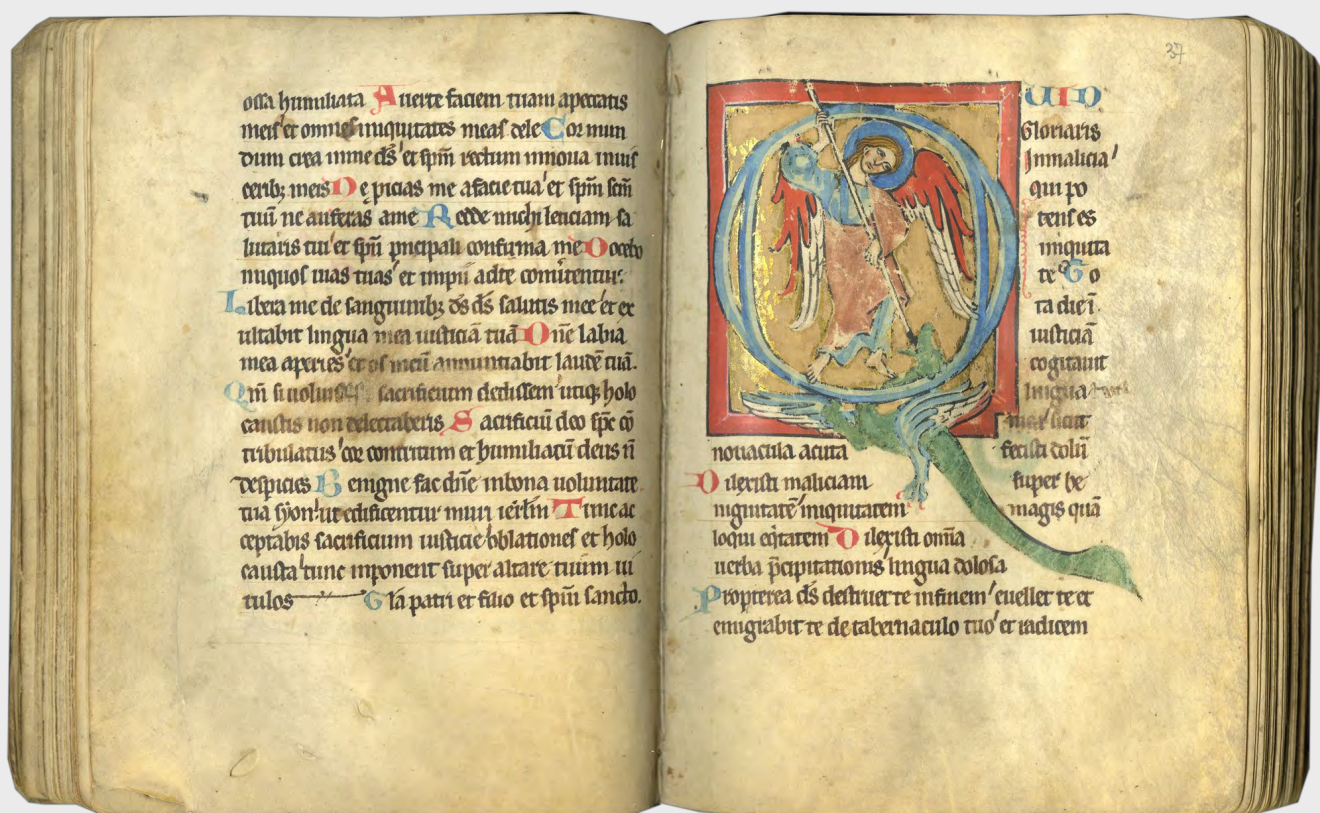 ossa humiliata Auerte faciem tuam apeccatis
meis' et omnes iniquitates meas dele Cor mun
dum crea inme ds' et spm̄ rectum innoua inuis
cerib; meis Ne ꝓicias me afacie tua' et spm̄ scm̄
tuū ne auferas ame Redde michi leticiam sa
lutaris tui' et spū pncipali confirma me Docebo
iniquos uias tuas' et impii adte conuertentur.
Libera me de sanguinib; ds̄ ds̄ salutis mee' et ex
ultabit lingua mea iusticiā tuā Dn̄e labia
mea aperies' et os meū annuntiabit laudē tuā.
Qm̄ si uoluisses sacrificium dedissem' utiq; holo
caustis non delectaberis Sacrificiū deo sp̄c cō
tribulatus' cor contritum et humiliatū deus n̄
despicies Benigne fac dn̄e inbona uoluntate
tua syon' ut edificentur muri ierlm̄ Tunc ac
ceptabis sacrificium iusticie' oblationes et holo
causta' tunc inponent super altare tuum ui
tulos Gl̄a patri et filio et spū sancto.
37
QUID
Gloriaris
Inmalicia'
qui po
tens es
iniquita
te To
ta die ī
iusticiā
cogitauit
lingua tua
nouacula acuta
fecisti dolū
Dilexisti maliciam
super be
nignitatē' iniquitatem
magis quā
loqui eq̄tatem Dilexisti omīa
uerba p̄cipitationis lingua dolosa
Propterea ds̄ destruet te infinem' euellet te et
emigrabit te de tabernaculo tuo' et radicem